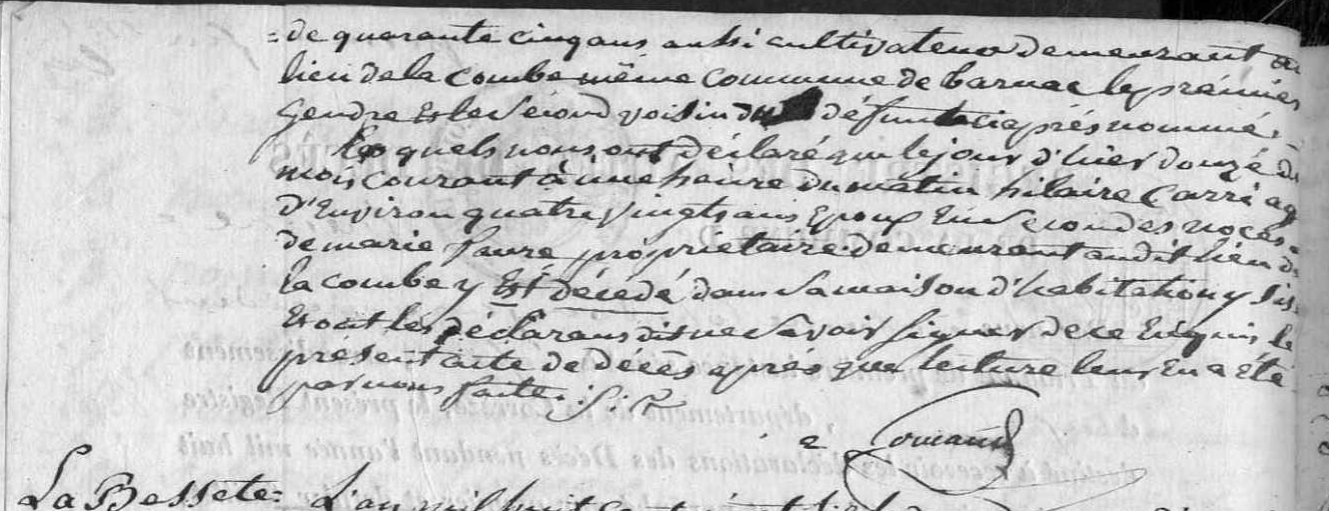 =de quarante cinq ans aussi cultivateur demeurant au
lieu de la combe même commune de barnac le prémiér
Gendre et le second voisin du défunt ciaprés nommé,
les quels nous ont déclaré que le jour d'hier douze du
mois courant à une heure du matin hilaire Carré ag
d'Environ quatre vingts ans Epoux En secondes noces
de marie faure proprietaire demeurant audit lieu de
la combe y Est décedé dans sa maison d'habitation y sis.
Et ont les déclarans dit ne savoir signer de ce Enquis le
présent acte de décès aprés que lecture leur En a été
par nous faite.
La Bessete = L'an mil huit cent